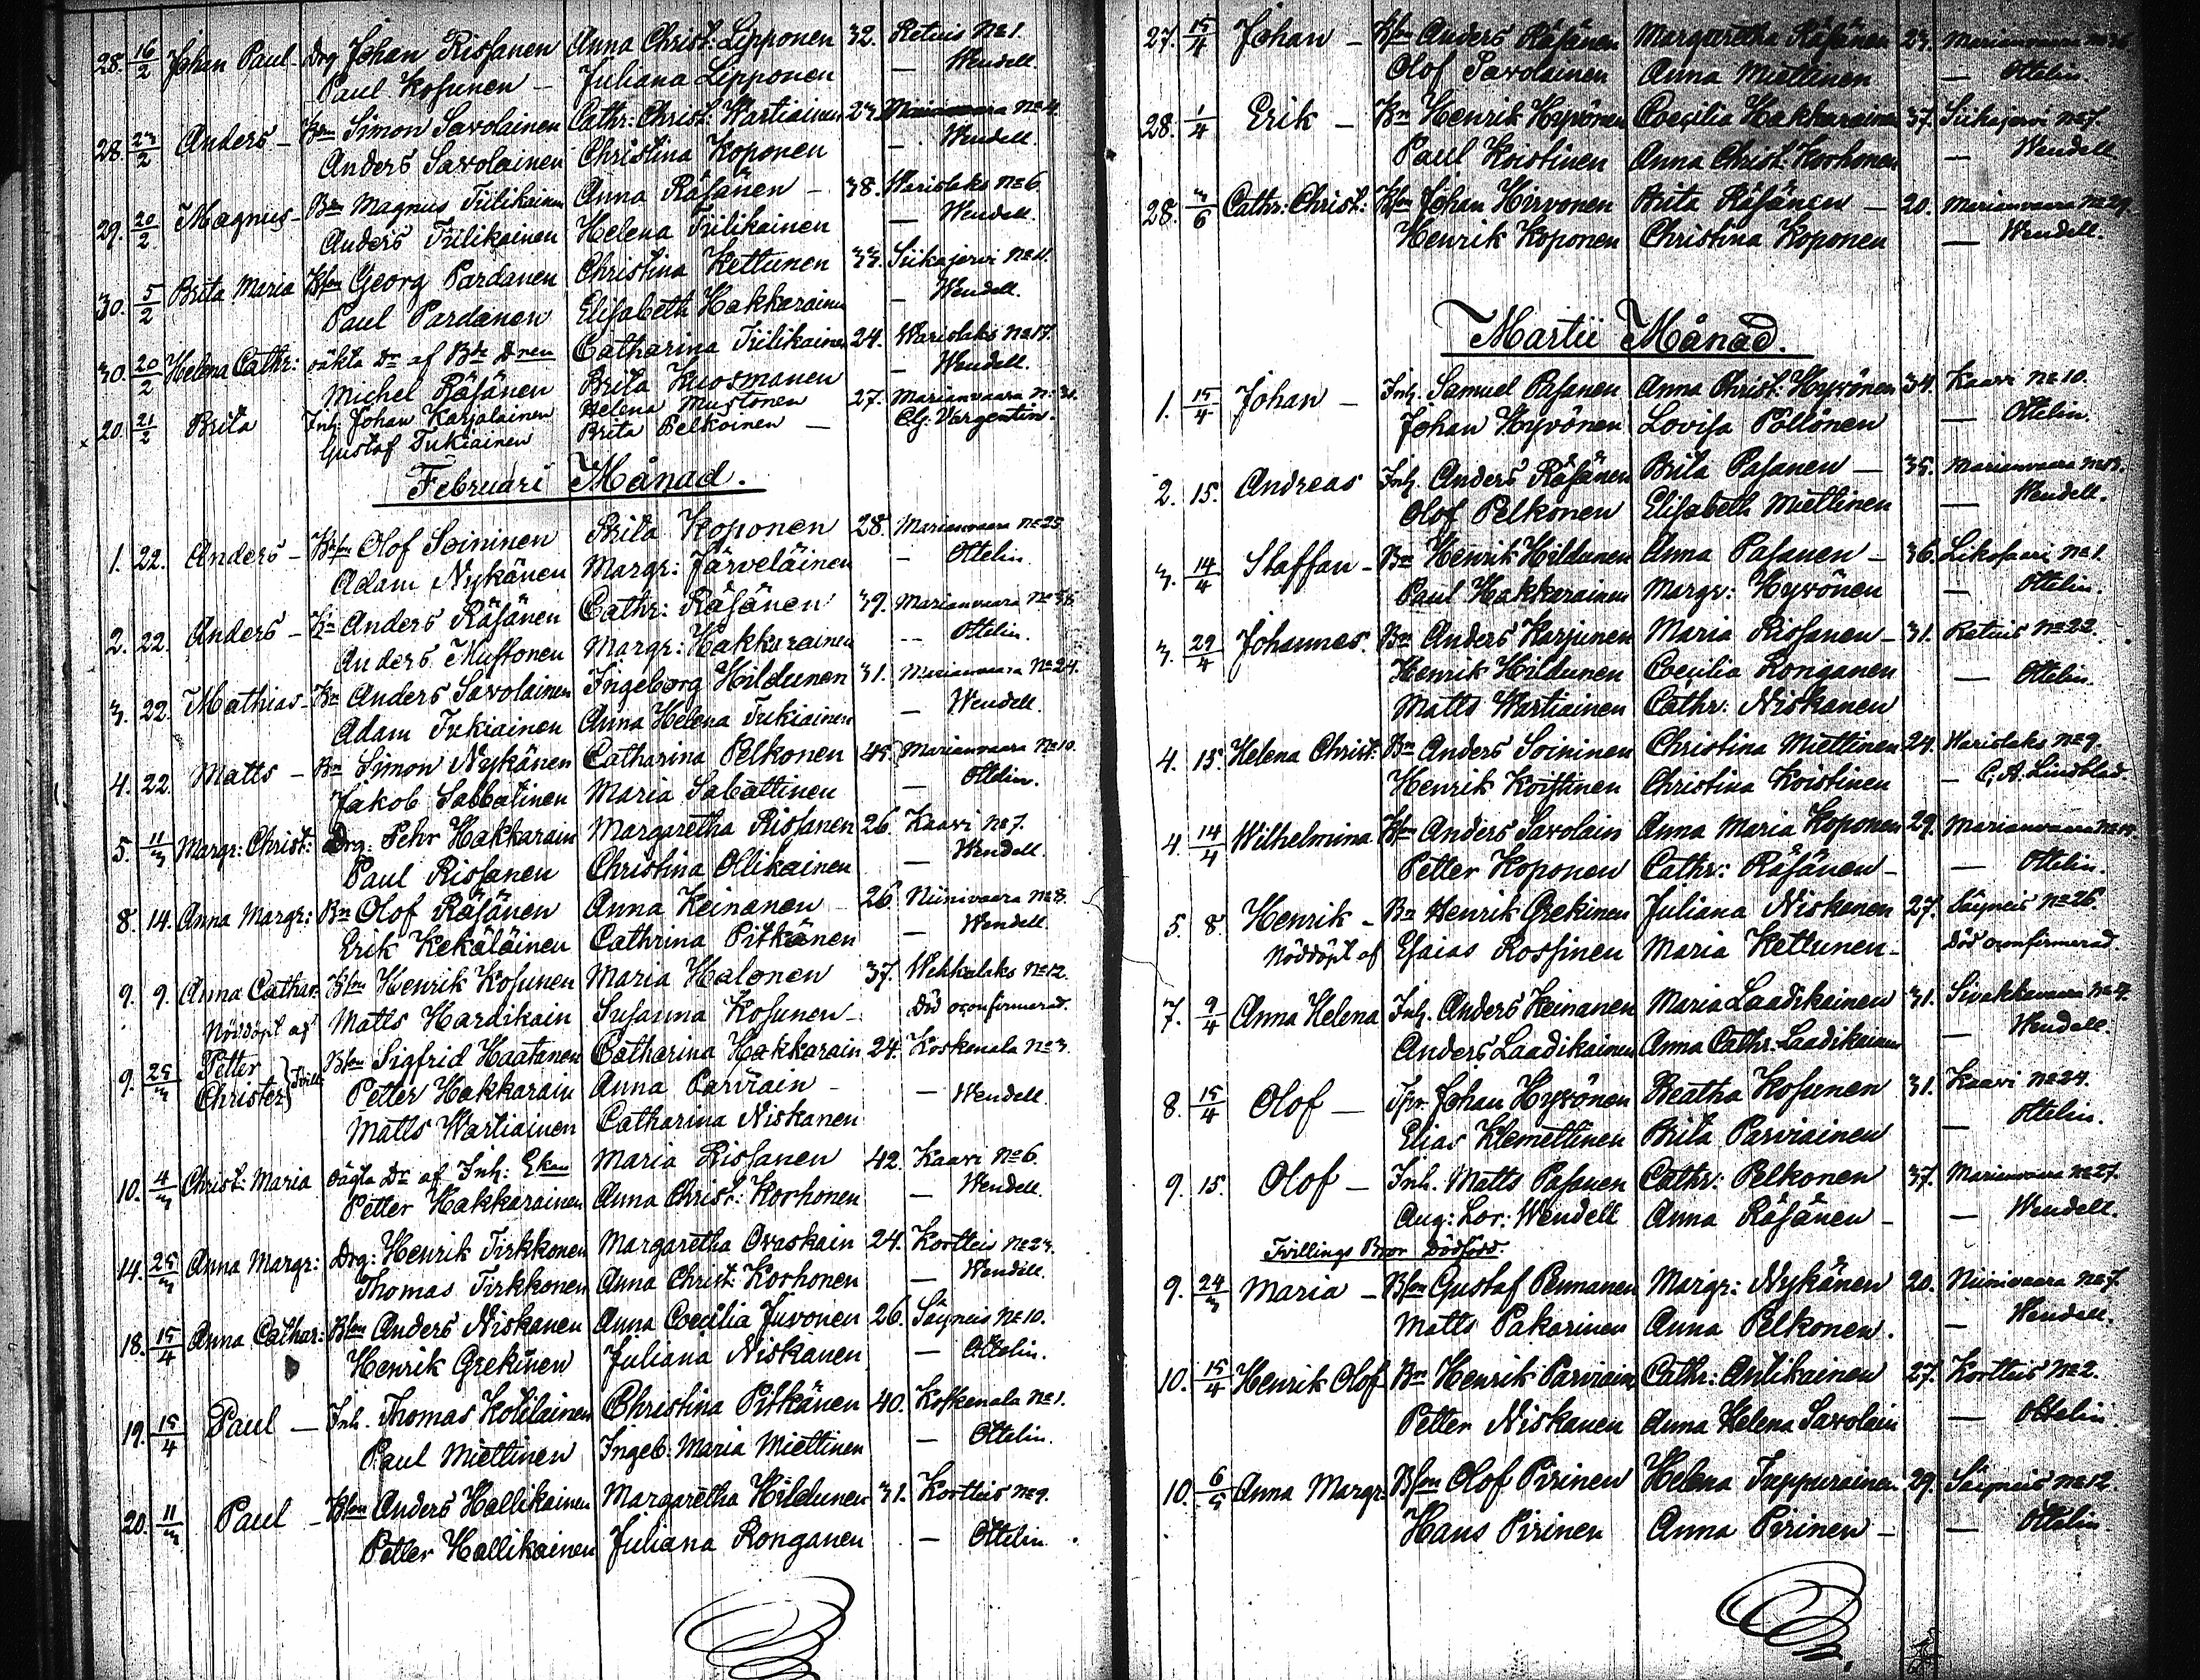 28. 16/2 Johan Paul - Drg Johan Rissanen Anna Christ: Lipponen 32. Retuis No 1.
Paul Kosunen - Juliana Lipponen — Wendell.
28. 23/2 Anders - Simon Savolainen Cathr: Christ: Wartiainen 23. No 4.
Anders Savolainen Christina Koponen — Wendell.
29. 20/2 Magnus - Bn Magnus Tiilikainen Anna Räsänen - 38. Warislaks No 6.
Anders Tiilikainen Helena Tiilikainen — Wendell.
30. 5/2 Brita Maria Bson Georg Pardanen Christina Kettunen 33. Siikajervi No 11.
Paul Pardanen Elisabeth Hakkarainen — Wendell.
30. 20/2 Helena Cathr: oäkta Dr af Bde Dren Catharina Tiilikainen 24. Warislaks No 17.
Michel Räsänen Brita Kuosmanen — Wendell.
20. 21/2 Brita Inh. Johan Karjalainen Helena Mustonen 27. Marianvaara
Gustaf Tukiainen Brita Pelkoinen — Clg: Vargentin.
Februari Månad.
1. 22. Anders - Olof Soininen Brita Koponen 28. Marianvaara No 25
Adam Nykänen Margr: Järveläinen - Ottelin.
2. 22. Anders - Anders Räsänen Cathr: Räsänen 39. Marianvaara
Anders Mustonen Margr: Hakkarainen -- Ottelin.
3. 22. Mathias - Bn Anders Savolainen Ingeborg Hildunen 31. Marianvaara No 24.
Adam Tukiainen Anna Helena Tukiainen — Wendell.
4. 22. Matts - Bn Simon Nykänen Catharina Pelkonen 45. Marianvaara No 10.
Jakob Sabbatinen Maria Sabattinen — Ottelin.
5. 11/3 Margr: Christ: Drg: Pehr Hakkarain Margaretha Rissanen 26. Kaavi No 7.
Paul Rissanen Christina Ollikainen — Wendell.
8. 14. Anna Margr: Bn Olof Räsänen Anna Keinanen 26. Niinivaara No 8.
Erik Kekäläinen Cathrina Pitkänen — Wendell.
9. 9. Anna Cathar: Bson Henrik Kosunen Maria Halonen 37. Wehkalaks No 12.
Nöddöpt af Matts Hardikain Susanna Kosunen - Död oconfirmerad.
9. 25/3 Petter Bson Sigfrid Haatanen Catharina Hakkarain 24. Koskenala No 3.
Christer } Tvill. Petter Hakkarain Anna Parviain - — Wendell.
Matts Wartiainen Catharina Niskanen
10. 4/3 Christ: Maria oägta Dr af Inh: Ekan Maria Rissanen 42. Kaavi No 6.
Petter Hakkarainen Anna Christ: Korhonen — Wendell.
14. 25/3 Anna Margr: Drg: Henrik Tirkkonen Margaretha Ovaskain 24. Kortteis No 23.
Thomas Tirkkonen Anna Christ: Korhonen — Wendell.
18. 15/4 Anna Cathar: Bson Anders Niskanen Anna Coecilia Juvonen 26. Säyneis No 10.
Henrik Grekinen Juliana Niskanen — Ottelin.
19. 15/4 Paul — Inh. Thomas Kotilainen Christina Pitkänen 40. Koskenala No 1.
Paul Miettinen Ingeb: Maria Miettinen — Ottelin.
20. 11/3 Paul - Bson Anders Hallikainen Margaretha Hildunen 31. Kortteis No 9.
Petter Hallikainen Juliana Ronganen — Ottelin.
27. 15/4 Johan - Bson Anders Räsänen Margaretha Räsänen 23. Marianvaara
Olof Savolainen Anna Miettinen — Ottelin.
28. 1/4 Erik - Bn Henrik Hyvönen Coecilia Hakkarainen 37. Siikajervi No 7.
Paul Koistinen Anna Christ. Korhonen — Wendell
28. 3/6 Cathr: Christ: Bson Johan Hirvonen Brita Räsänen — 20. Marianvaara No 29.
Henrik Koponen Christina Koponen — Wendell.
Martii Månad.
1. 15/4 Johan - Inh. Samuel Pasanen Anna Christ: Hyvönen 34. Kaavi No 10.
Johan Hyvönen Lovisa Pöllönen — Ottelin.
2. 15. Andreas Inh. Anders Räsänen Brita Pasanen — 35. Marianvaara
Olof Pelkonen Elisabeth Miettinen — Wendell.
3. 14/4 Staffan - Bn Henrik Hildunen Anna Pasanen - 36. Likosaari No 1.
Paul Hakkarainen Margr: Hyvönen — Ottelin.
3. 29/4 Johannes. Bn Anders Karjunen Maria Rissanen - 31. Retuis No 22.
Henrik Hildunen Coecilia Ronganen — Ottelin.
Matts Wartiainen Cathr: Niskanen
4. 15. Helena Christ: Bn Anders Soininen Christina Miettinen 24. Warislaks No 9.
Henrik Koistinen Christina Koistinen — C. A. Lindblad.
4. 14/4 Wilhelmina Bson Anders Savolain Anna Maria Koponen 29. Marianvaara
Petter Koponen Cathr: Räsänen - — Ottelin.
5. 8. Henrik - Bn Henrik Grekinen Juliana Niskanen 27. Säyneis No 26.
Nöddöpt af Esaias Rossinen Maria Kettunen - Död oconfirmerad.
7. 9/4 Anna Helena Inh. Anders Keinanen Maria Laadikainen 31. Sivakkavaara No 4.
Anders Laadikainen Anna Cathr: Laadikainen — Wendell.
8. 15/4 Olof — Johan Hyvönen Beatha Kosunen 31. Kaavi No 24.
Elias Klemettinen Brita Parviainen — Ottelin.
9. 15. Olof - Inh. Matts Pasanen Cathr: Pelkonen 37. Marianvaara No 27.
Aug: Lor: Wendell Anna Räsänen - — Wendell.
Tvillings Bror Dödförd.
9. 24/3 Maria - Bson Gustaf Pennanen Margr: Nykänen 20. Niinivaara No 7.
Matts Pakarinen Anna Pelkonen. — Wendell.
10. 15/4 Henrik Olof Bn Henrik Parviain Cathr: Antikainen 27. Kortteis No 2.
Petter Niskanen Anna Helena Savolain — Ottelin
10. 6/5 Anna Margr: Bson Olof Pirinen Helena Teppurainen 29. Säyneis No 12.
Hans Pirinen Anna Pirinen - — Ottelin